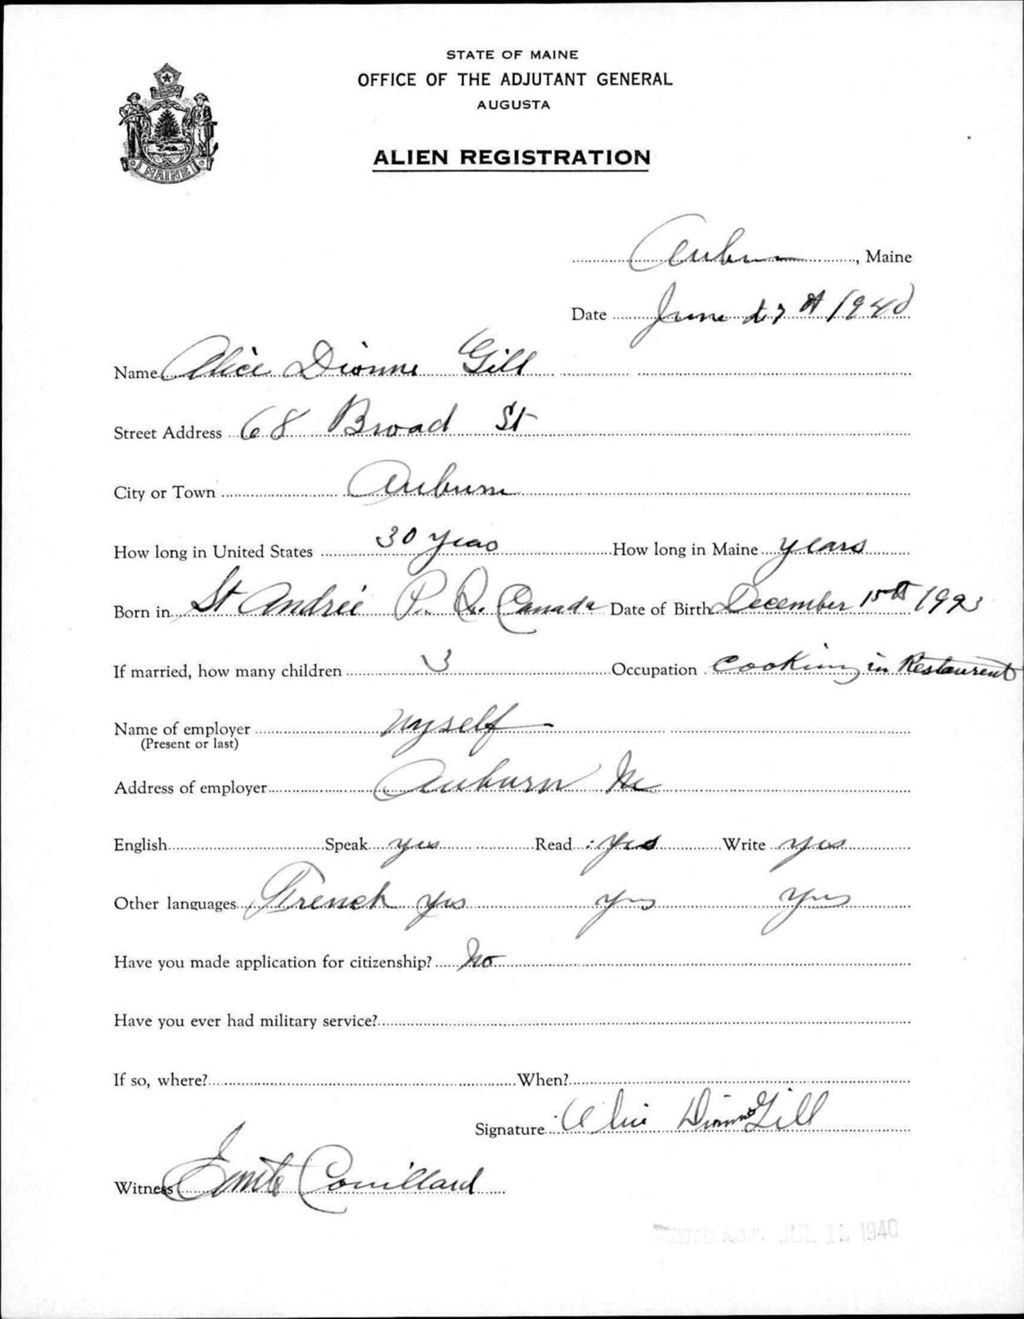 STATE OF MAINE
OFFICE OF THE ADJUTANT GENERAL
AUGUSTA
ALIEN REGISTRATION
MAINE
Auburn, Maine
Date June 27th 1940
Name Alice Dionne Gill
Street Address 68 Broad St
City or Town Auburn
How long in United States 30 years How long in Maine years
Born in St Andreé P. Q. Canada Date of Birth December 15th 1993
If married, how many children 3 Occupation Cooking in Restaurent
Name of employer myself
(Present or last)
Address of employer Auburn Me
English Speak yes Read yes Write yes
Other languages French yes yes yes
Have you made application for citizenship? No
Have you ever had military service?
If so, where? When?
Signature Alice Dionne Gill
Witness Couillard
A.G.O. JUL 1940